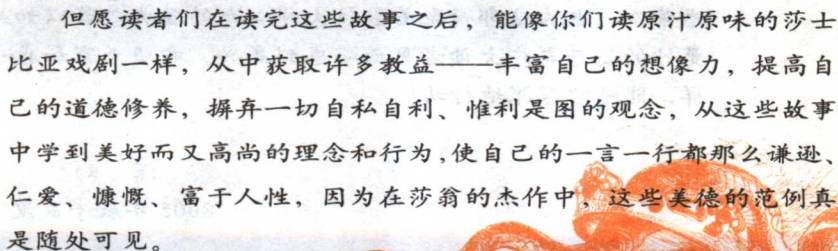 但愿读者们在读完这些故事之后，能像你们读原汁原味的莎士
比亚戏剧一样，从中获取许多教益——丰富自己的想像力，提高自
己的道德修养，摒弃一切自私自利、惟利是图的观念，从这些故事
中学到美好而又高尚的理念和行为，使自己的一言一行都那么谦逊、
仁爱、慷慨、富于人性，因为在莎翁的杰作中，这些美德的范例真
是随处可见。